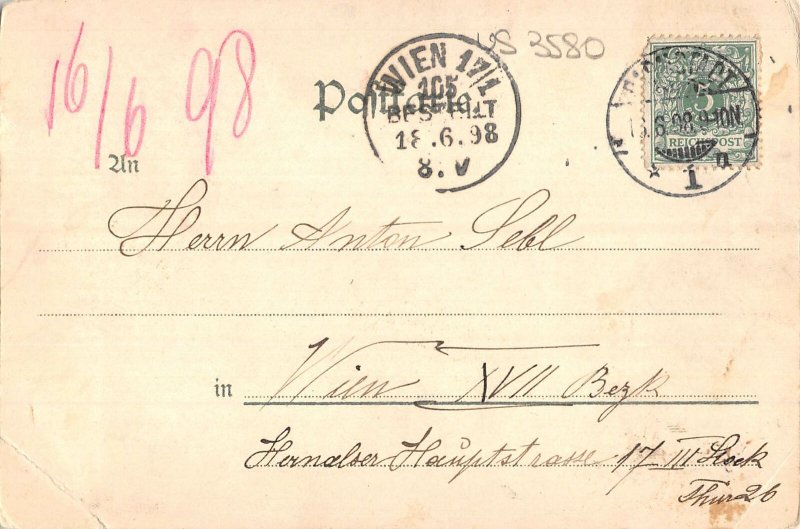 16/6 98
VS 3580
WIEN 17/1
105
BESTELLT
18.6.98
8.V
Postkarte
6.98.9-10N.
1 n
5
REICHSPOST
An
Herrn Anton Sebl
in Wien XVII Bezk
Hernalser Hauptstrasse 17 III Stock
Thür 26